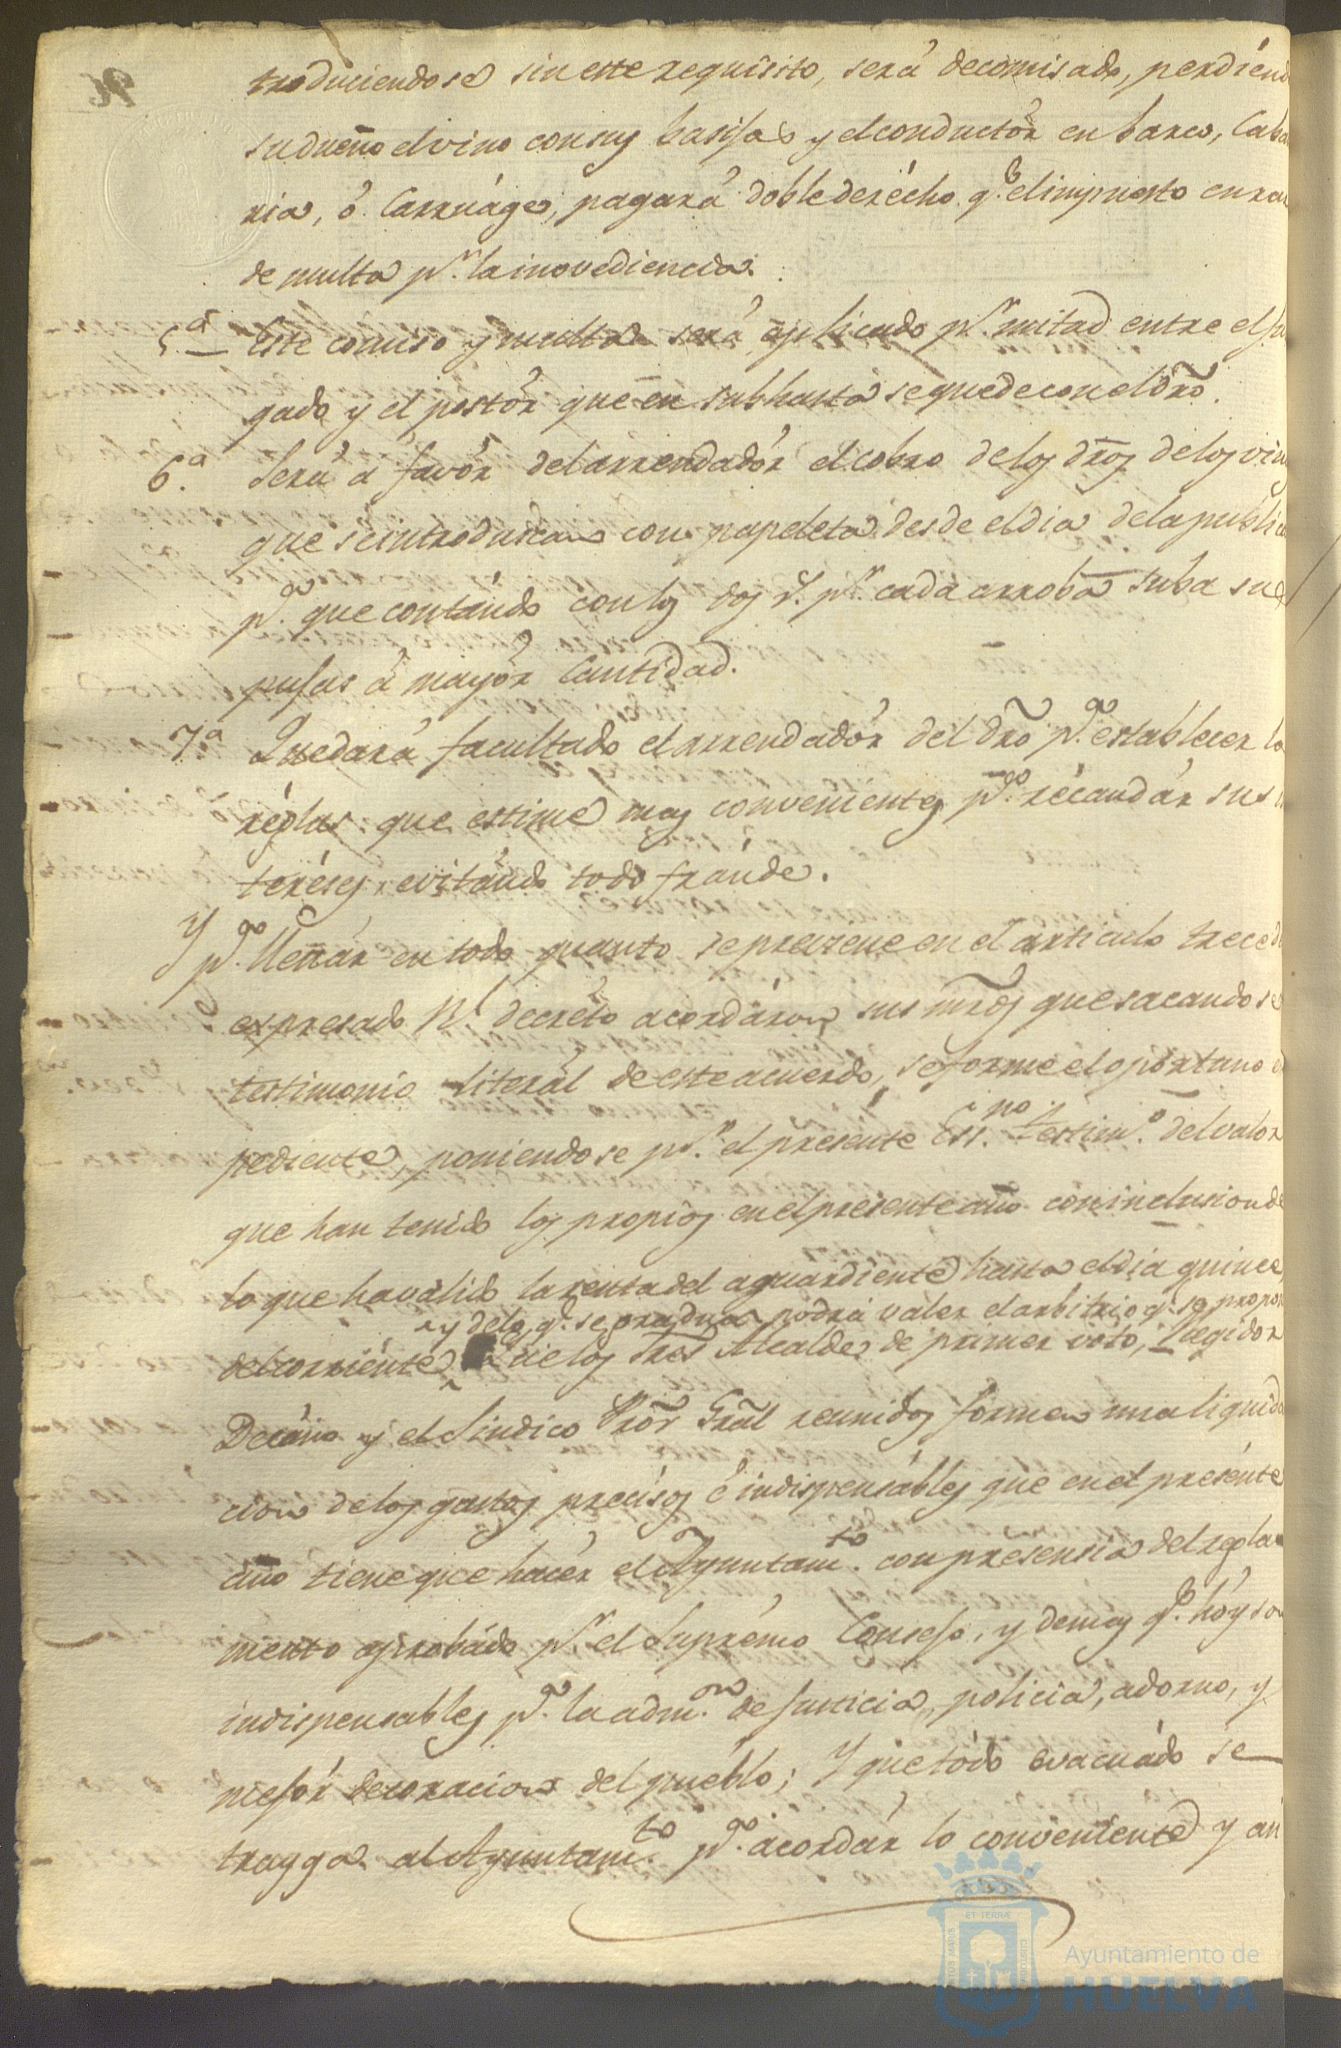 troduciendose sin este requisito, será decomisado, perdiend
su dueño el vino con sus basijas y el conductor en barco, Caba
ria, ó Carruáge, pagará doble derécho q.e el impuesto en ra
de multa p.r la inovediencia.
5.a Este comiso y multa será aplicado p.r mitad entre el Ju
gado y el postór que en subhasta se quede con el dro.
6.a Será á favór del arrendadór el cobro de los dros de los vin
que se introduscan con papeleta desde el dia de la public
p.a que contándo con los dos r.s p.r cada arroba suba su
pujas á mayór Cantidad.
7.a Quedará facultado el arrendadór del dro p.a establecer la
réglas que estime mas convenientes p.a récaudár sus
teréses, evitándo todo fráude.
Y p.a llenár en todo quanto se previene en el articulo trece d
expresado R.l decréto acordáron sus mrds que sacandose
testimonio literál de este acuerdo, se forme el oportuno
pediente, poniendose p.r el presente Ess.no testim.o del valor
que han tenido los propios en el presente año con inclusion de
lo que ha valido la renta del aguardiente hasta el dia quince
y de lo q.e se produzca podrá valer el arbitrio q.e se propon
del corriénte de los Sres Alcalde de primer voto, Regidor
Decáno y el Sindico Pror Gral reunidos formen una liquida
cion de los gastos precisos é indispensábles que en el presénte
año tiene que hacér el Ayuntam.to con presencia del regla
mento aprobádo p.r el Suprémo Consejo, y demas q.e hóy son
indispensables p.a la adm.on de Justicia, policia, adorno, y
mejór decoracion del puéblo; Y que tódo evacuádo se
tragga al Ayuntam.to p.a acordár lo conveniente y an
ET TERRÆ
Ayuntamiento de
HUELVA